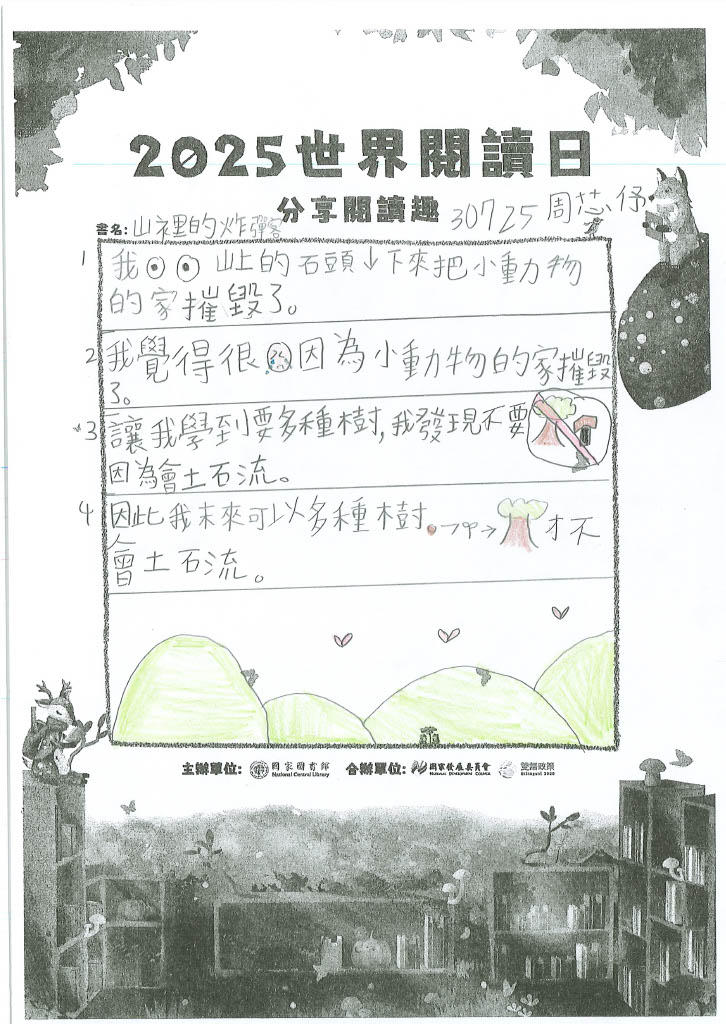 2025世界閱讀日
分享閱讀趣
30725 周芯伃
書名: 山裡的炸彈客
1 我 山上的石頭↓下來把小動物
的家摧毀了。
2 我覺得很 因為小動物的家摧毀
了。
3 讓我學到要多種樹,我發現不要
因為會土石流。
4 因此我未來可以多種樹。→中→ 才不
會土石流。
主辦單位: 國家圖書館 National Central Library 合辦單位: 國家發展委員會 NATIONAL DEVELOPMENT COUNCIL 雙語政策 Bilingual 2030